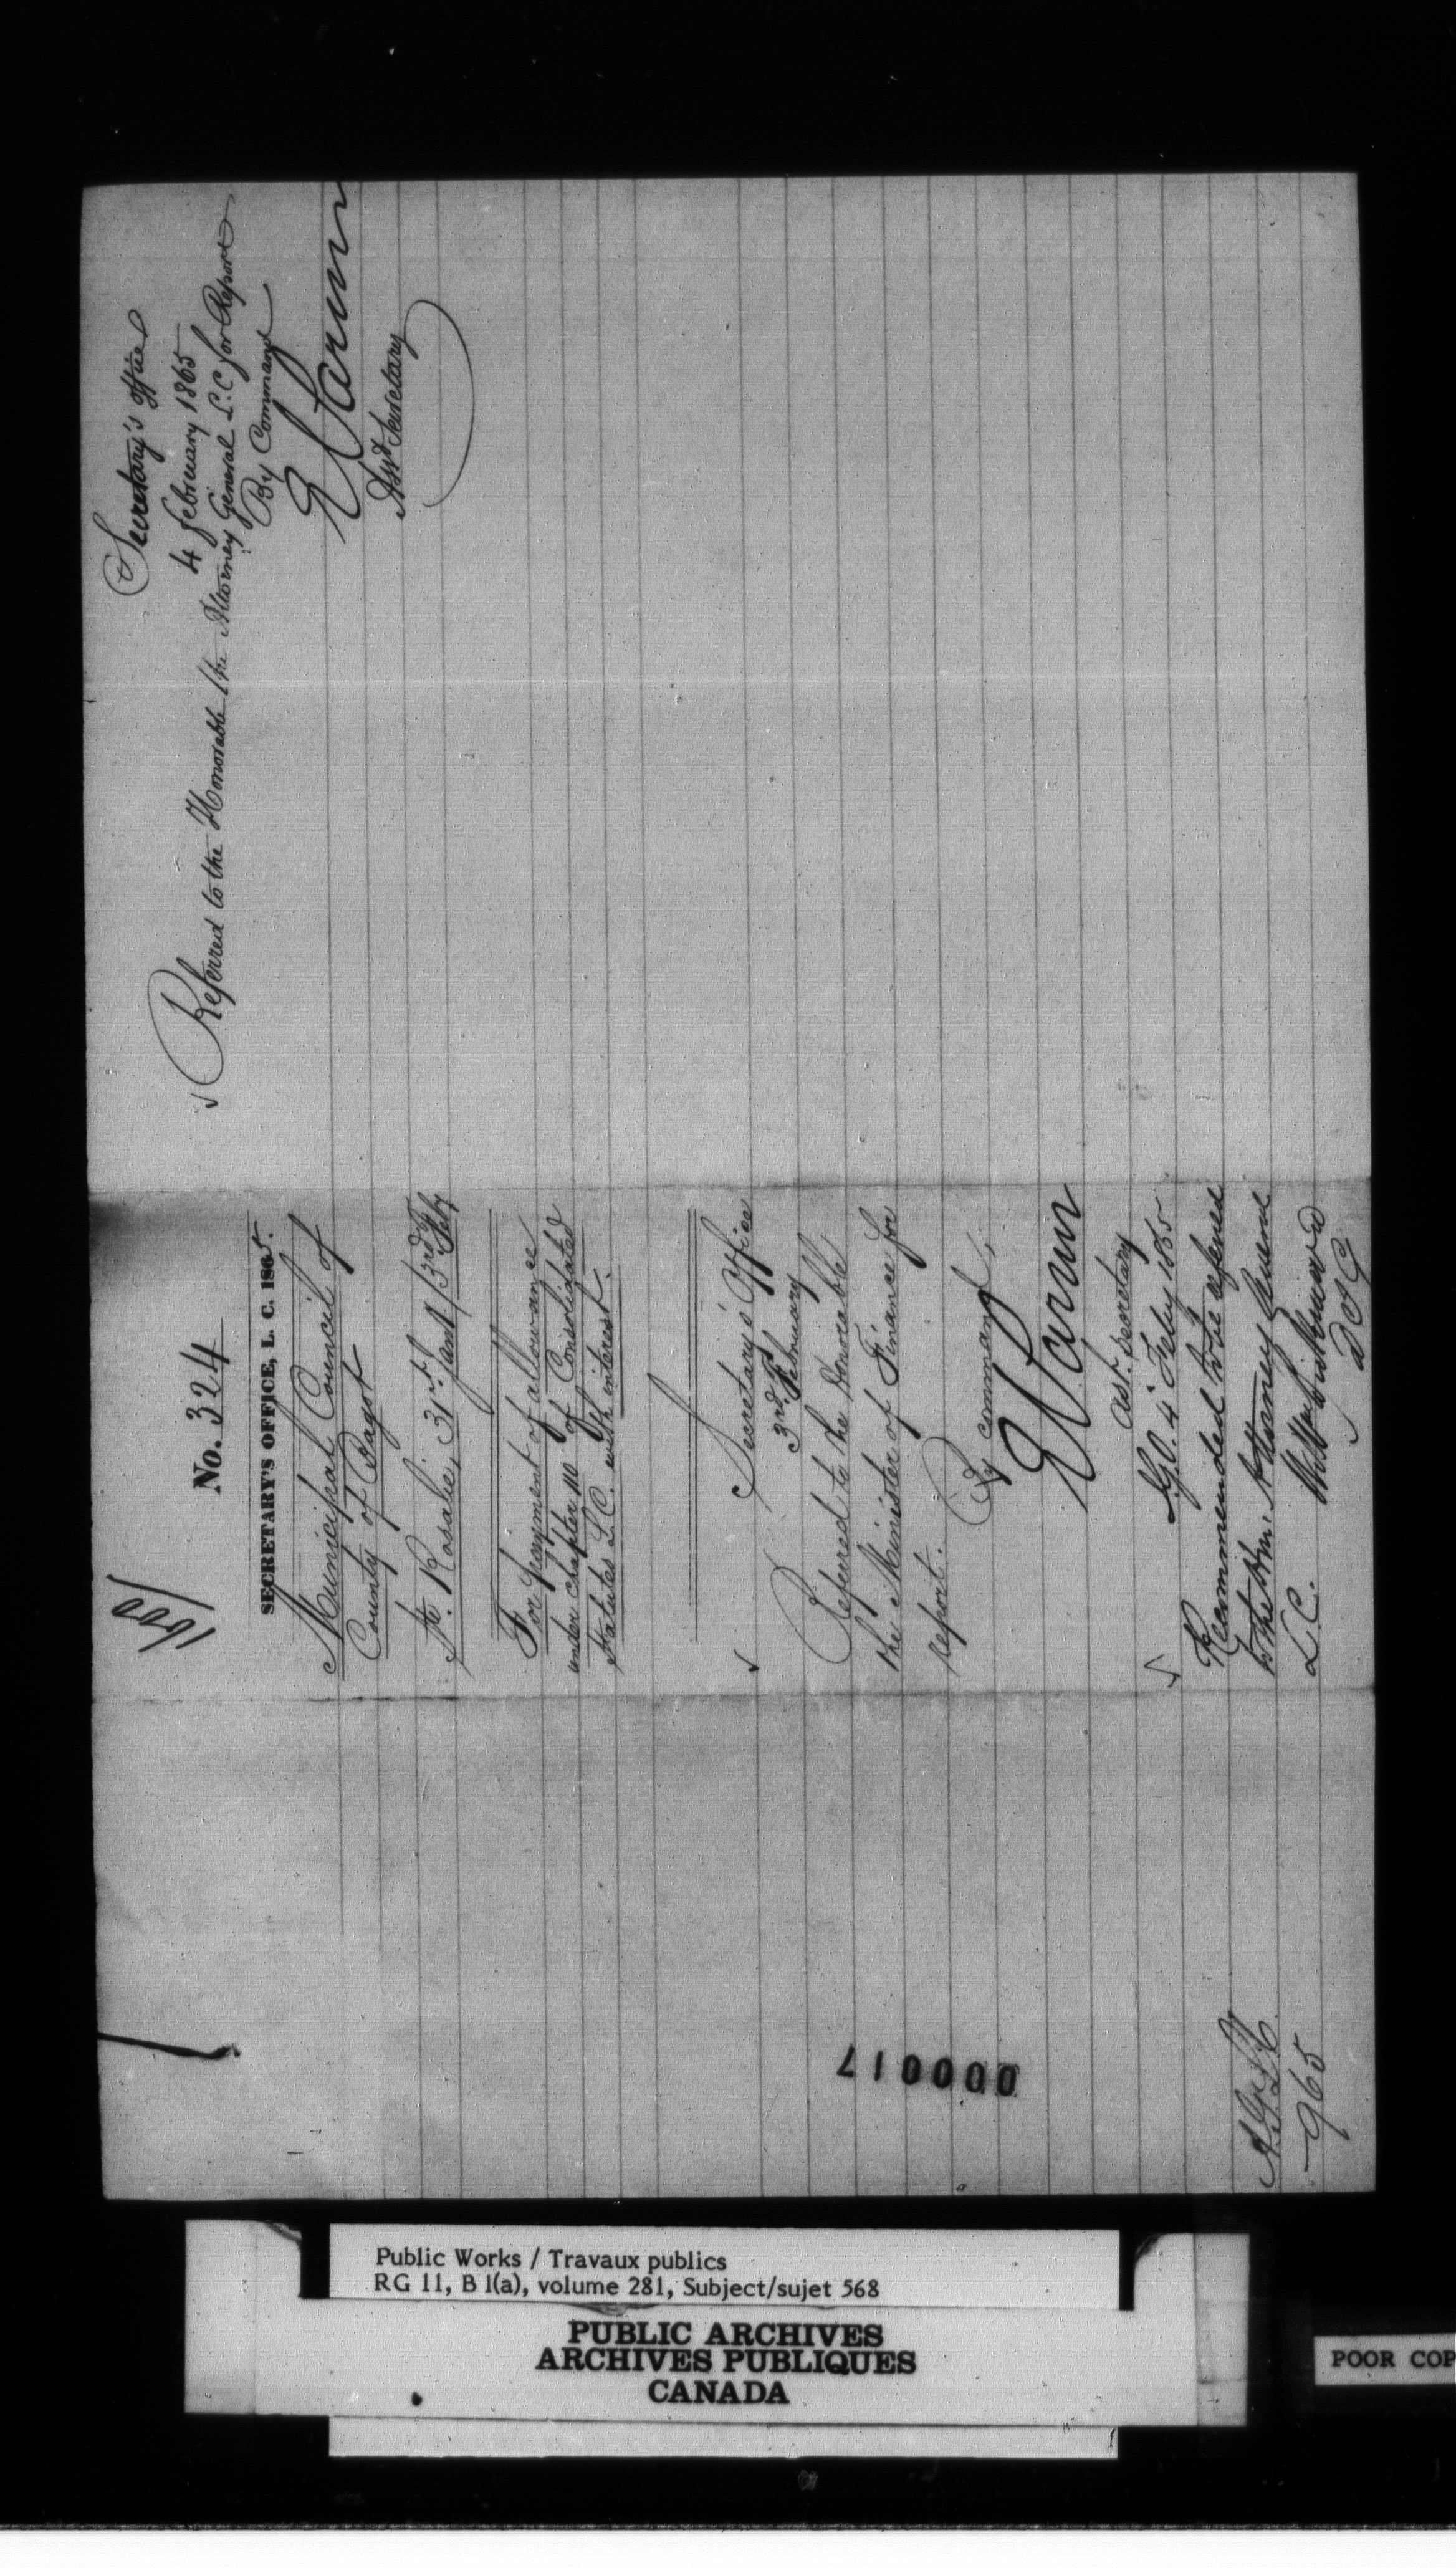 No. 324
SECRETARY'S OFFICE, L. C. 1865.
Municipal Council of
County of Bagot
Ste. Rosalie, 31st Jany / 3rd Feby
For payment of allowance
under chapter 110 of Consolidated
Statutes L.C. with interest.
Secretary's Office
3rd February
Referred to the Honorable
the Minister of Finance for
report.
By command,
E Parent
Asst. Secretary
4 Feby 1865
Recommended to be referred
to the Hon. Attorney General
L.C.
Secretary's office
4 february 1865
Referred to the Honorable the Attorney General L.C. for Report
By Command
E Parent
Asst Secretary
965
000017
Public Works / Travaux publics
RG 11, B 1(a), volume 281, Subject/sujet 568
PUBLIC ARCHIVES
ARCHIVES PUBLIQUES
CANADA
POOR COP